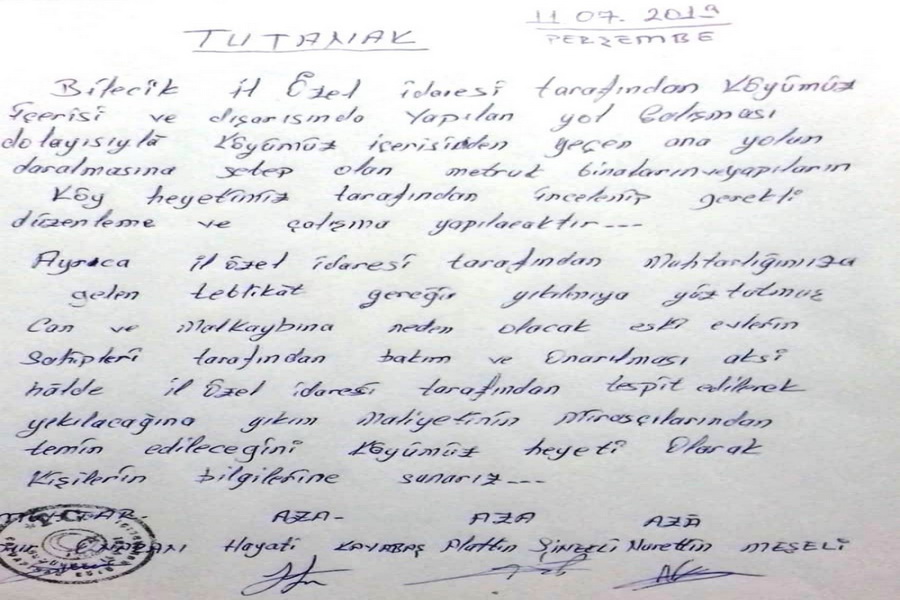 11 07. 2019
PERŞEMBE
TUTANAK
Bilecik il Özel idaresi tarafından Köyümüz
içerisi ve dışarısında yapılan yol Çalışması
dolayısıyla Köyümüz içerisinden geçen ana yolun
daralmasına sebep olan metruk binaların ve yapıların
Köy heyetimiz tarafından incelenip gerekli
düzenleme ve çalışma yapılacaktır---
Ayrıca il özel idaresi tarafından Muhtarlığımıza
gelen teblikat gereği yıkılmıya yüz tutmuş
Can ve Malkaybına neden olacak eski evlerin
Sahipleri tarafından bakım ve Onarılması aksi
hâlde il Özel idaresi tarafından tespit edilerek
yıkılacağına yıkım Maliyetinin Mirasçılarından
temin edileceğini Köyümüz heyeti Olarak
Kişilerin bilgilerine sunarız---
MUHTAR- AZA- AZA AZA
Hayati KAYABAŞ Alattin Nurettin MEŞELİ